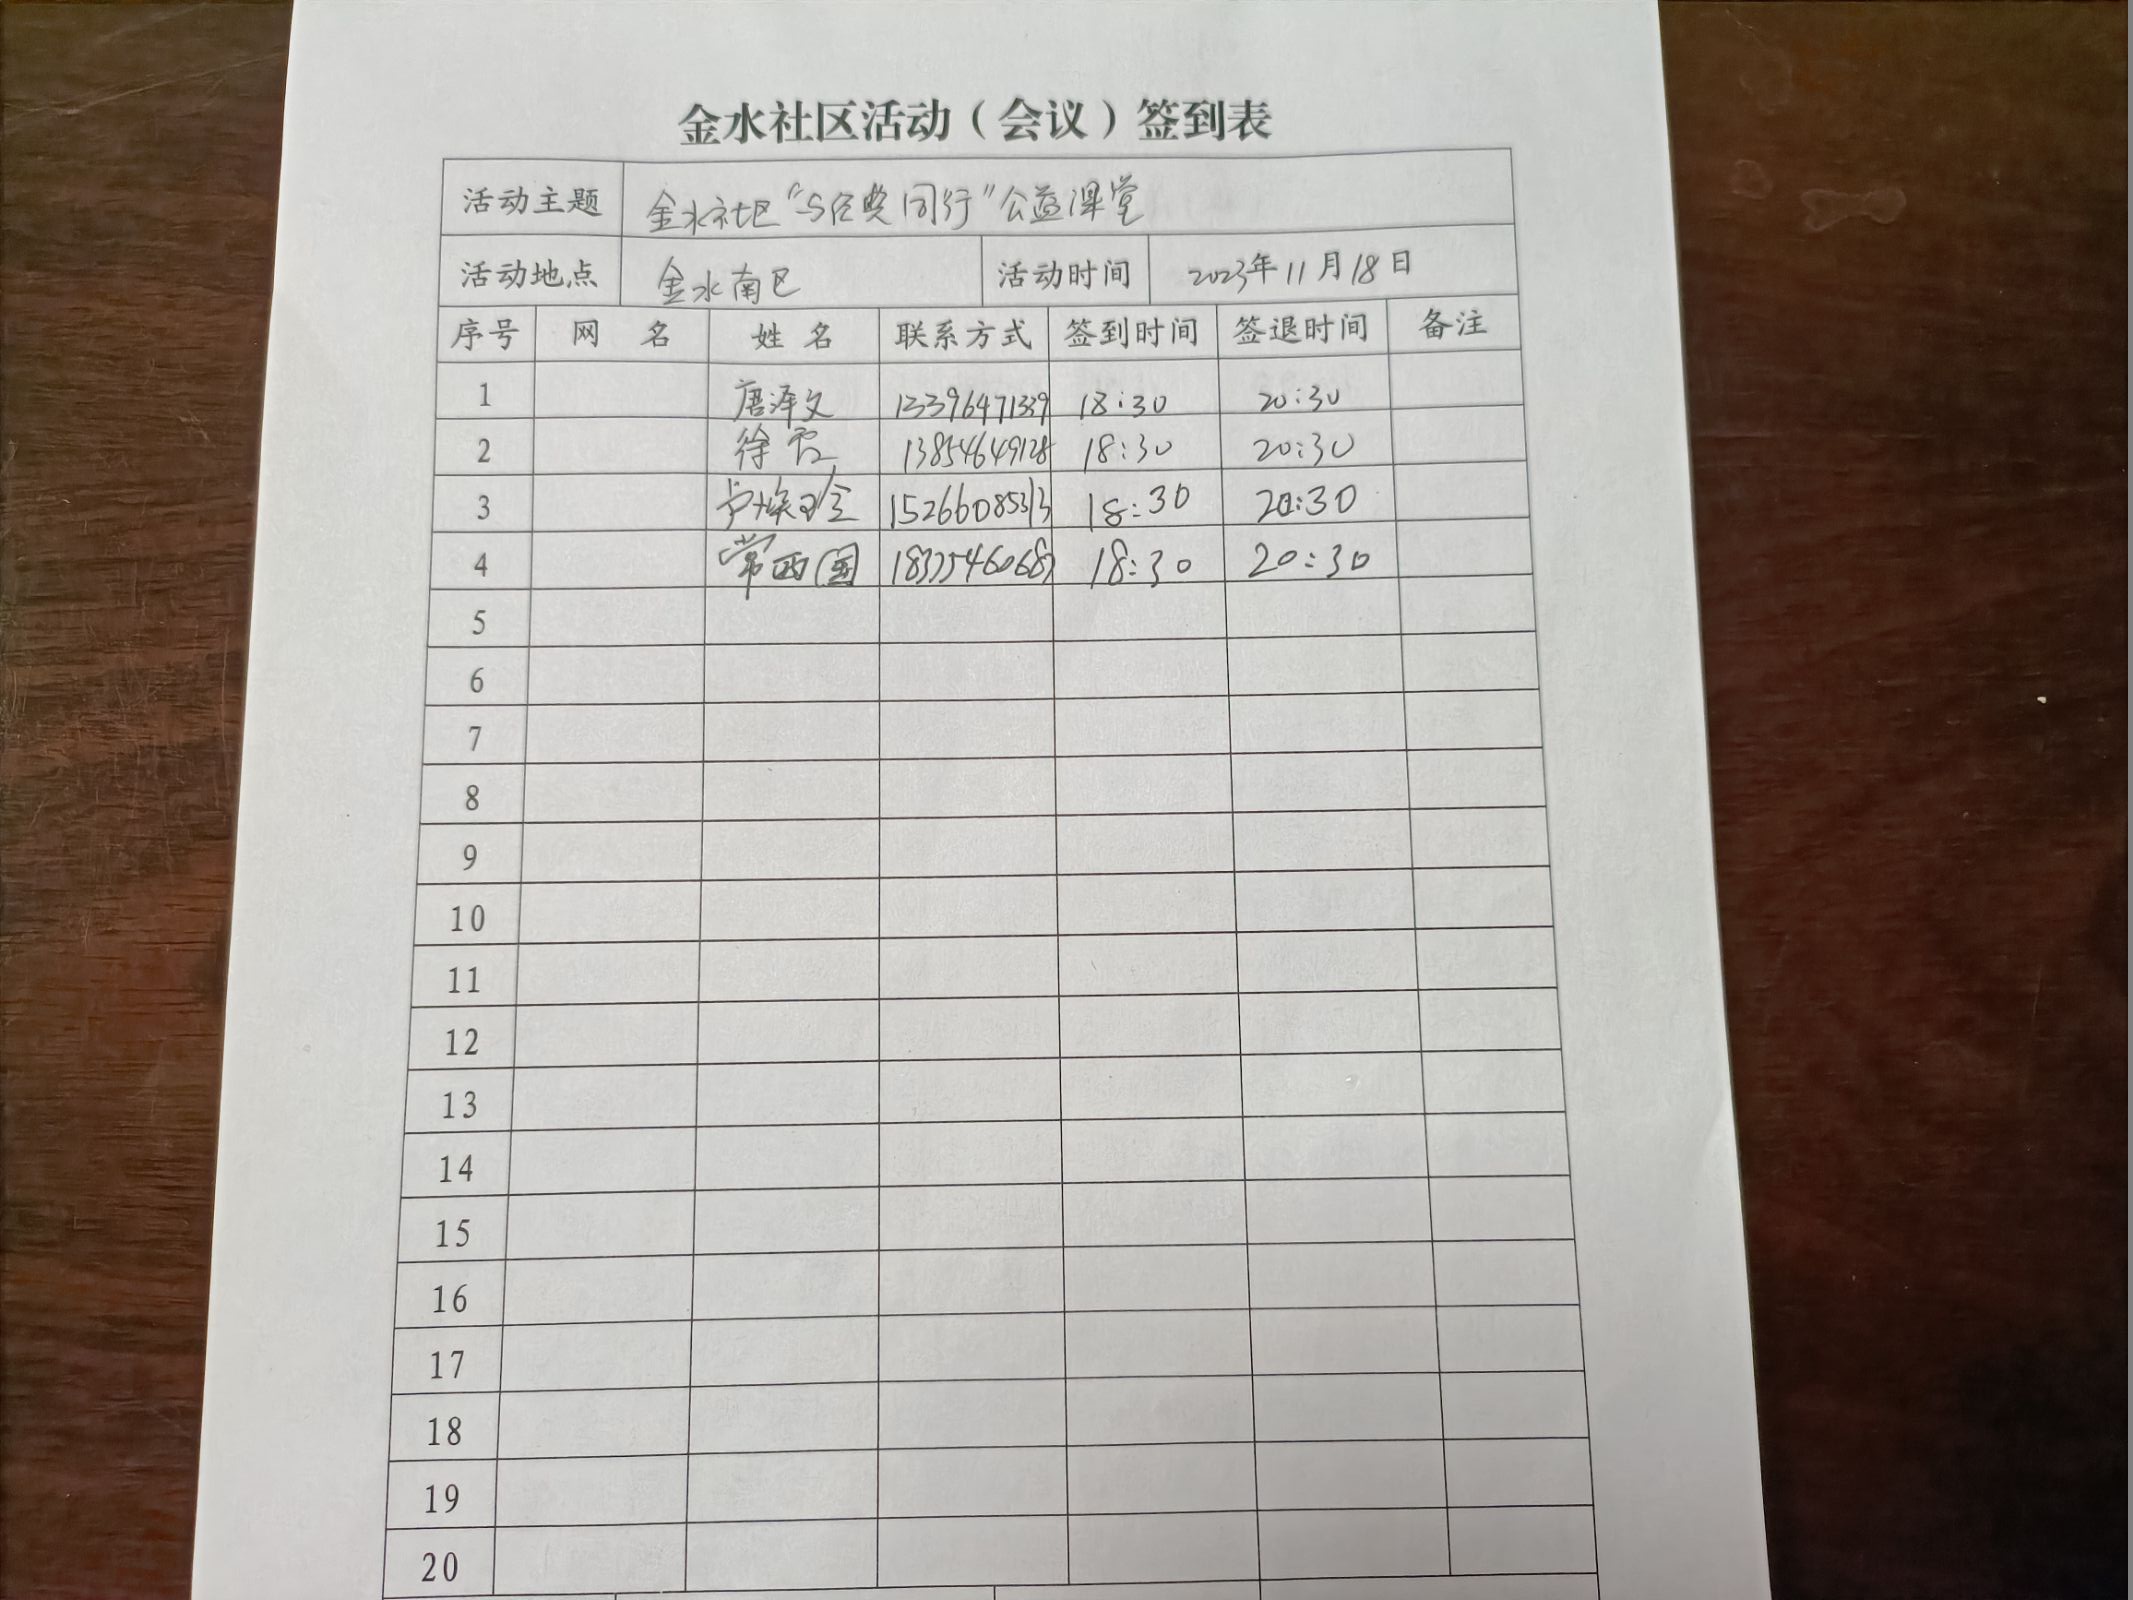 金水社区活动（会议）签到表
活动主题 金水社区“与经典同行”公益课堂
活动地点 金水南区 活动时间 2023年11月18日
序号 网 名 姓 名 联系方式 签到时间 签退时间 备注
1 唐泽文 13396471339 18:30 20:30
2 徐霞 13854649128 18:30 20:30
3 15266085313 18:30 20:30
4 常西国 18:30 20:30
5
6
7
8
9
10
11
12
13
14
15
16
17
18
19
20